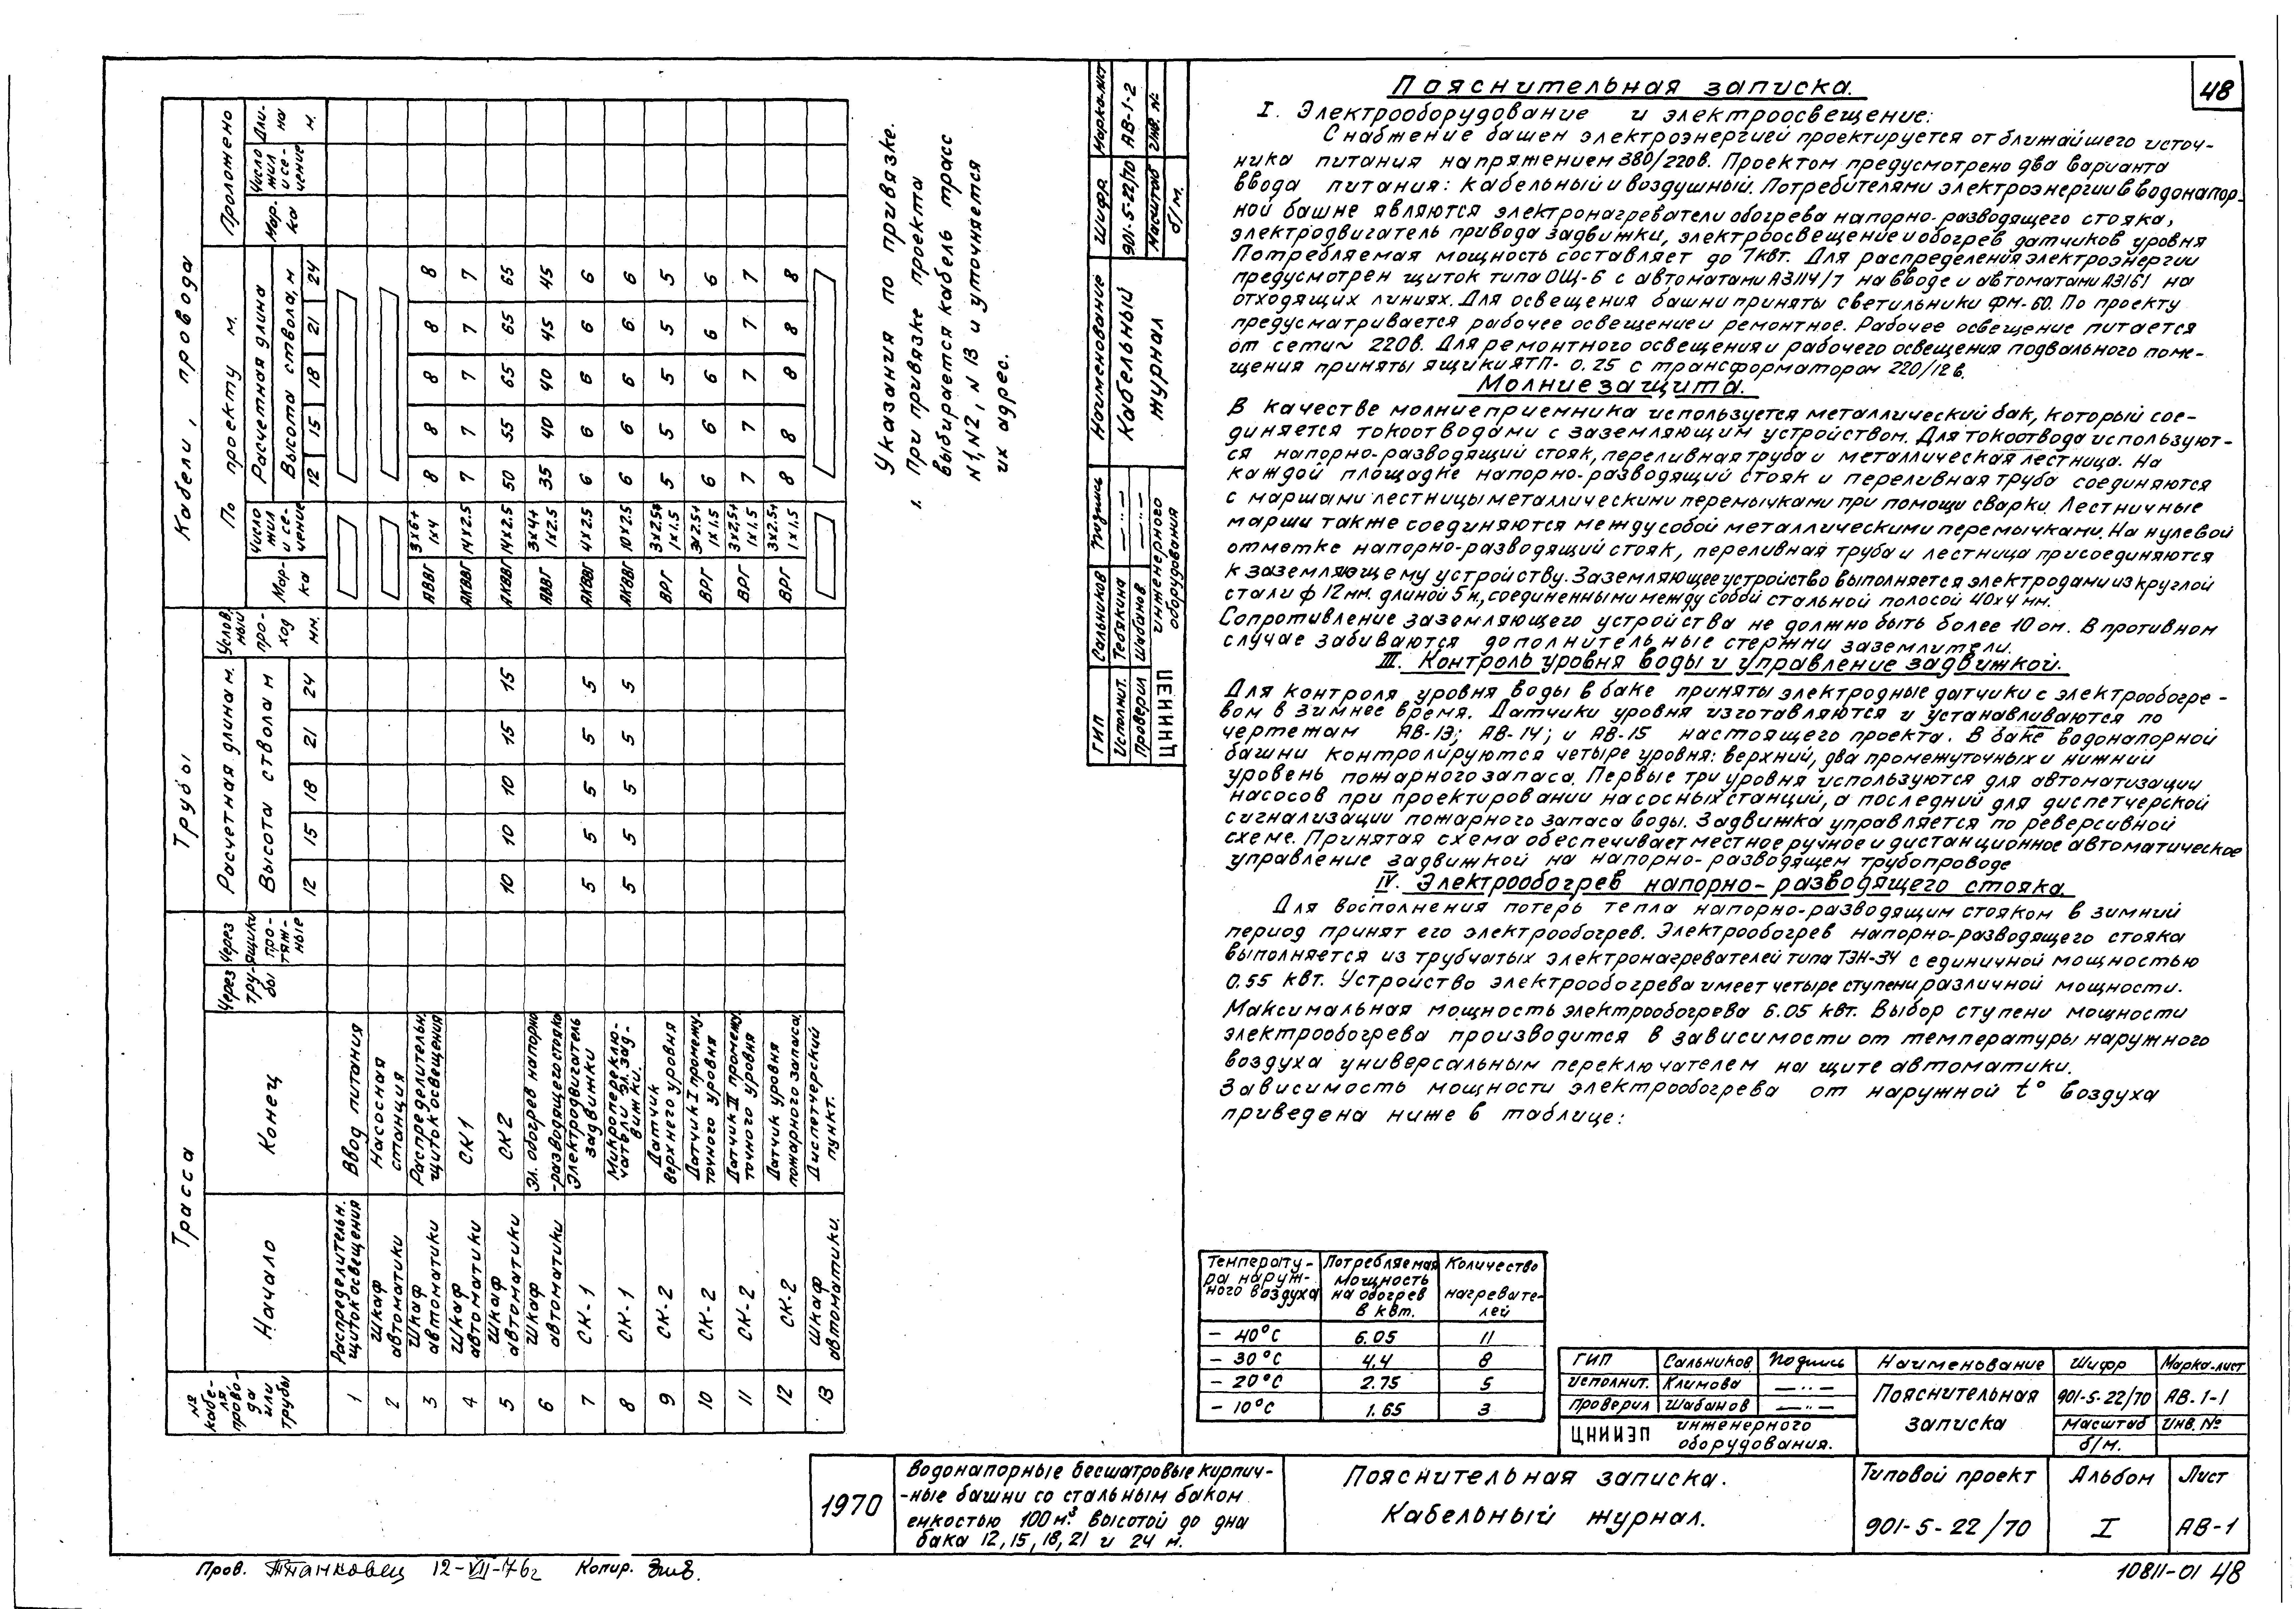 48
Пояснительная записка.
I. Электрооборудование и электроосвещение:
Снабжение башен электроэнергией проектируется от ближайшего источ-
ника питания напряжением 380/220в. Проектом предусмотрено два варианта
ввода питания: кабельный и воздушный. Потребителями электроэнергии в водонапор-
ной башне являются электронагреватели обогрева напорно-разводящего стояка,
электродвигатель привода задвижки, электроосвещение и обогрев датчиков уровня
Потребляемая мощность составляет до 7квт. Для распределения электроэнергии
предусмотрен щиток типа ОЩ-6 с автоматами А3114/7 на вводе и автоматами А3161 на
отходящих линиях. Для освещения башни приняты светильники ФМ-60. По проекту
предусматривается рабочее освещение и ремонтное. Рабочее освещение питается
от сети ~ 220в. Для ремонтного освещения и рабочего освещения подвального поме-
щения приняты ящики ЯТП-0.25 с трансформатором 220/12в.
Молниезащита.
В качестве молниеприемника используется металлический бак, который сое-
диняется токоотводами с заземляющим устройством. Для токоотвода используют-
ся напорно-разводящий стояк, переливная труба и металлическая лестница. На
каждой площадке напорно-разводящий стояк и переливная труба соединяются
с маршами лестницы металлическими перемычками при помощи сварки. Лестничные
марши также соединяются между собой металлическими перемычками. На нулевой
отметке напорно-разводящий стояк, переливная труба и лестница присоединяются
к заземляющему устройству. Заземляющее устройство выполняется электродами из круглой
стали ф 12мм. длиной 5м, соединенными между собой стальной полосой 40х4 мм.
Сопротивление заземляющего устройства не должно быть более 10 ом. В противном
случае забиваются дополнительные стержни заземлители.
III. Контроль уровня воды и управление задвижкой.
Для контроля уровня воды в баке приняты электродные датчики с электрообогре-
вом в зимнее время. Датчики уровня изготавляются и устанавливаются по
чертежам АВ-13; АВ-14; и АВ-15 настоящего проекта. В баке водонапорной
башни контролируются четыре уровня: верхний, два промежуточных и нижний
уровень пожарного запаса. Первые три уровня используются для автоматизации
насосов при проектировании насосных станций, а последний для диспетчерской
сигнализации пожарного запаса воды. Задвижка управляется по реверсивной
схеме. Принятая схема обеспечивает местное ручное и дистанционное автоматическое
управление задвижкой на напорно-разводящем трубопроводе
IV. Электрообогрев напорно-разводящего стояка
Для восполнения потерь тепла напорно-разводящим стояком в зимний
период принят его электрообогрев. Электрообогрев напорно-разводящего стояка
выполняется из трубчатых электронагревателей типа ТЭН-34 с единичной мощностью
0.55 квт. Устройство электрообогрева имеет четыре ступени различной мощности.
Максимальная мощность электрообогрева 6.05 квт. Выбор ступени мощности
электрообогрева производится в зависимости от температуры наружного
воздуха универсальным переключателем на щите автоматики.
Зависимость мощности электрообогрева от наружной t° воздуха
приведена ниже в таблице:
Температу- Потребляемая Количество
ра наруж- мощность
ного воздуха на обогрев нагревате-
в квт. лей
- 40°С 6.05 11
- 30°С 4.4 8
- 20°С 2.75 5
- 10°С 1.65 3
ГИП Сальников Подпись Наименование Шифр Марка-лист
Исполнит. Климова —"— Пояснительная записка 901-5-22/70 АВ.1-1
Проверил Шабанов —"— Масштаб Инв. №
ЦНИИЭП инженерного оборудования. б/м.
1970
Водонапорные бесшатровые кирпич-
-ные башни со стальным баком
емкостью 100 м³ высотой до дна
бака 12, 15, 18, 21 и 24 м.
Пояснительная записка.
Кабельный журнал.
Типовой проект Альбом Лист
901-5-22/70 I АВ-1
Пров. 12-VII-76г Копир.
10811-01 48
№ кабеля, провода или трубы
Трасса
Начало Конец Через трубы Через ящики протяжные
Трубы
Расчетная длина м. Условный проход мм.
Высота ствола м
12 15 18 21 24
Кабели, провода
По проекту м. Проложено
Марка Число жил и сечение Расчетная длина Марка Число жил и сечение Длина м.
Высота ствола, м
12 15 18 21 24
1 Распределительн. щиток освещения Ввод питания
2 Шкаф автоматики Насосная станция
3 Шкаф автоматики Распределительн. щиток освещения АВВГ 3х6+1х4 8 8 8 8 8
4 Шкаф автоматики СК1 АКВВГ 14х2.5 7 7 7 7 7
5 Шкаф автоматики СК2 10 10 10 15 15 АКВВГ 14х2.5 50 55 65 65 65
6 Шкаф автоматики Эл. обогрев напорно-разводящего стояка АВВГ 3х4+1х2.5 35 40 40 45 45
7 СК-1 Электродвигатель задвижки 5 5 5 5 5 АКВВГ 4х2.5 6 6 6 6 6
8 СК-1 Микропереключатели эл. задвижки. 5 5 5 5 5 АКВВГ 10х2.5 6 6 6 6 6
9 СК-2 Датчик верхнего уровня ВРГ 3х2.5+1х1.5 5 5 5 5 5
10 СК-2 Датчик I промежуточного уровня ВРГ 3х2.5+1х1.5 6 6 6 6 6
11 СК-2 Датчик II промежуточного уровня ВРГ 3х2.5+1х1.5 7 7 7 7 7
12 СК-2 Датчик уровня пожарного запаса. ВРГ 3х2.5+1х1.5 8 8 8 8 8
13 Шкаф автоматики. Диспетчерский пункт.
Указания по привязке.
1. При привязке проекта
выбирается кабель трасс
N1, N2, N13 и уточняется
их адрес.
ГИП Сальников Подпись Наименование Шифр Марка-лист
Исполнит. Тебякина —"— Кабельный журнал 901-5-22/70 АВ-1-2
Проверил Шабанов —"— Масштаб Инв. №
ЦНИИЭП инженерного оборудования б/м.